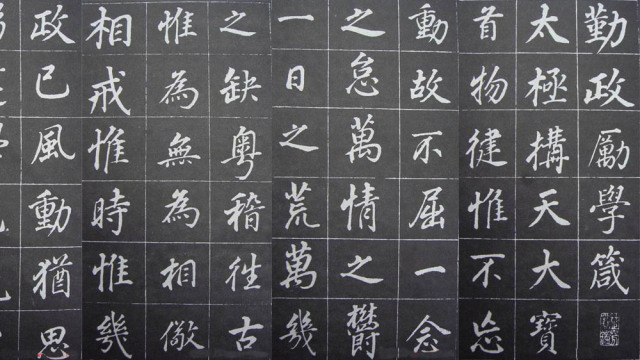 勤政勵學箴
太極構天大寶
首物徤惟不忘
動故不屈一念
之怠萬情之鬱
一日之荒萬幾
之缺粵稽徃古
惟為無為相儆
相戒惟時惟幾
政已風動猶思